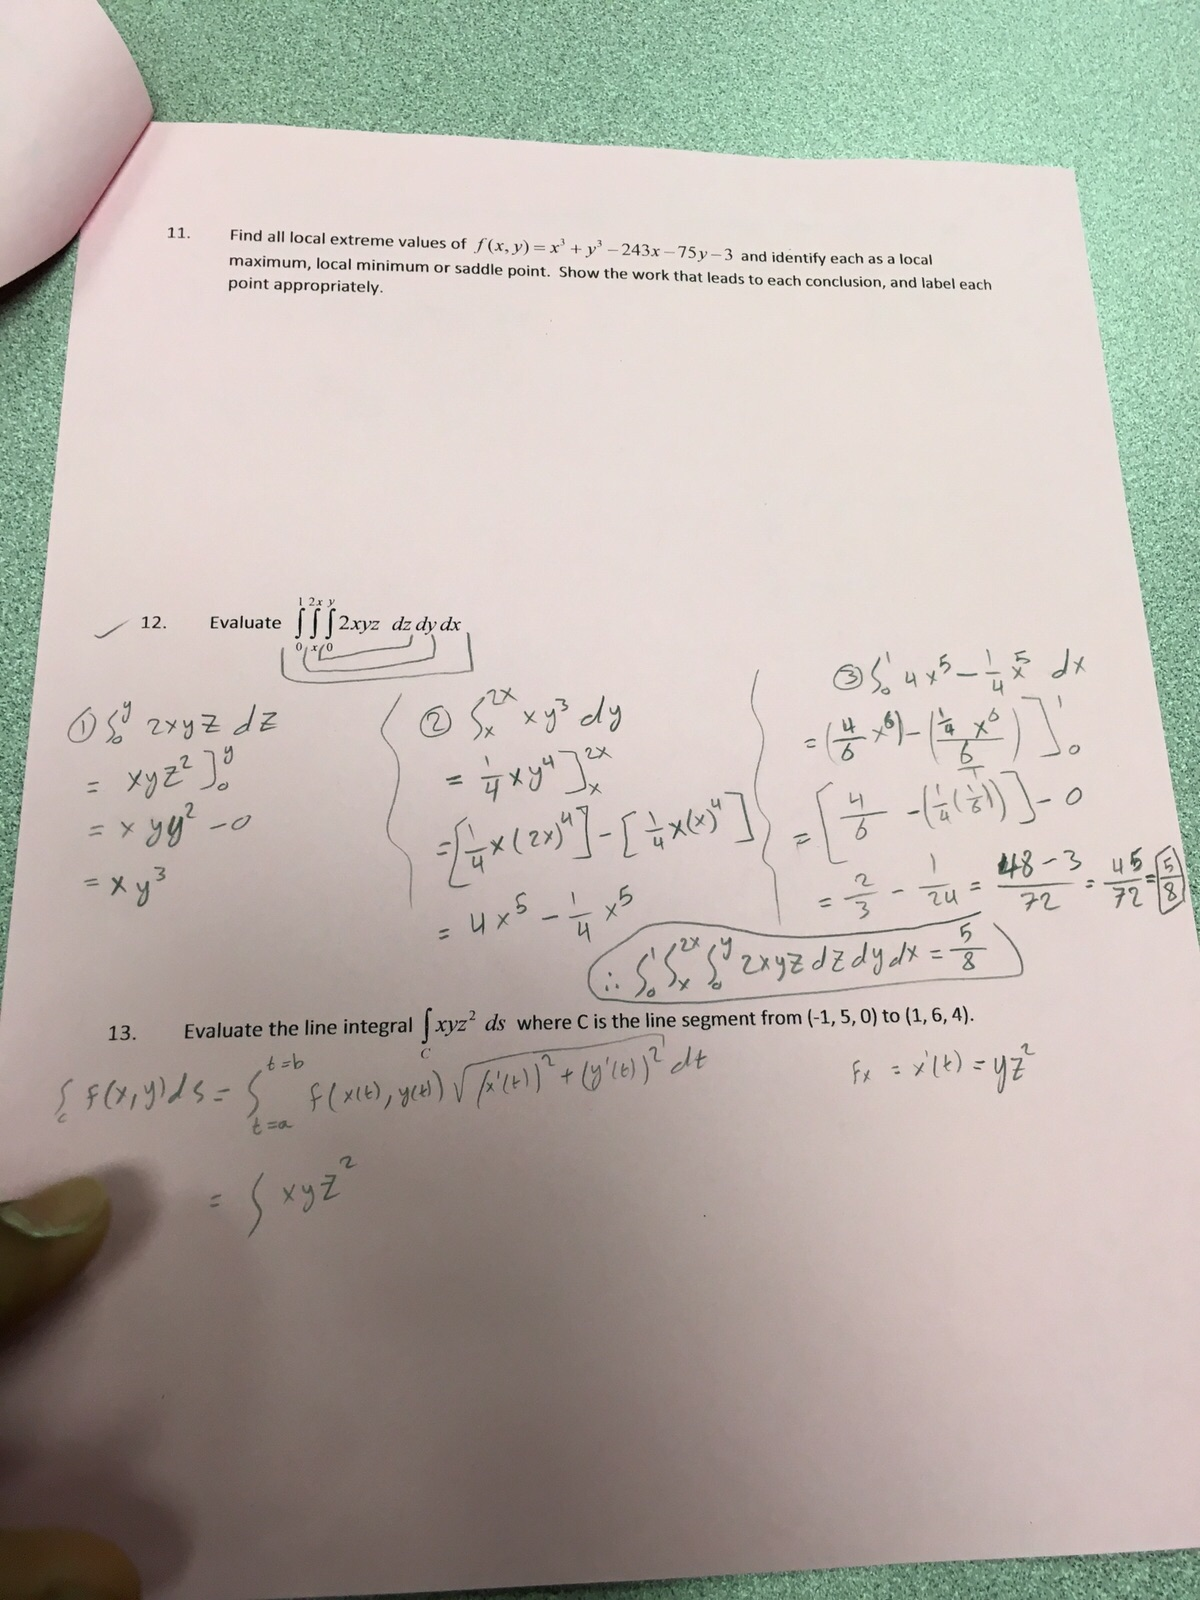 11. Find all local extreme values of f(x, y) = x³ + y³ − 243x − 75y − 3 and identify each as a local
maximum, local minimum or saddle point. Show the work that leads to each conclusion, and label each
point appropriately.
✓ 12. Evaluate ∫₀¹ ∫ₓ²ˣ ∫₀ʸ 2xyz dz dy dx
① ∫₀ʸ 2xyz dz
= xyz² ]₀ʸ
= x yy² − 0
= xy³
② ∫ₓ²ˣ xy³ dy
= 1/4 xy⁴ ]ₓ²ˣ
= [1/4 x(2x)⁴] − [1/4 x(x)⁴]
= 4x⁵ − 1/4 x⁵
③ ∫₀¹ 4x⁵ − 1/4 x⁵ dx
= (4/6 x⁶) − (1/4 x⁶ / 6) ]₀¹
= [4/6 − (1/4(1/6))] − 0
= 2/3 − 1/24 = (48 − 3)/72 = 45/72 = 5/8
∴ ∫₀¹ ∫ₓ²ˣ ∫₀ʸ 2xyz dz dy dx = 5/8
13. Evaluate the line integral ∫_C xyz² ds where C is the line segment from (-1, 5, 0) to (1, 6, 4).
∫_c f(x,y)ds = ∫_{t=a}^{t=b} f(x(t), y(t)) √((x'(t))² + (y'(t))²) dt
= ∫ xyz²
Fx = x'(t) = yz²